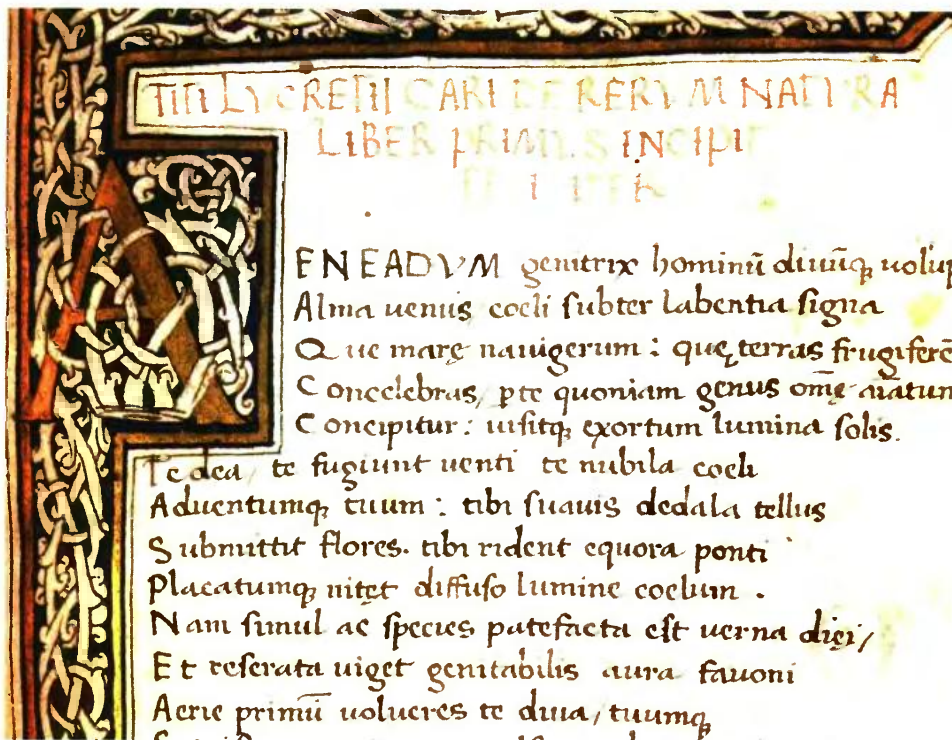 TITI LVCRETII CARI DE RERVM NATVRA
LIBER PRIMVS INCIPIT
ENEADVM genitrix hominū diuūq; uolup
Alma uenus coeli subter labentia signa
Que marę nauigerum: quę terras frugiferē
Concelebras, pte quoniam genus omę aīatum
Concipitur: uisitq; exortum lumina solis.
Te dea, te fugiunt uenti te nubila coeli
Aduentumq; tuum: tibi suauis dedala tellus
Submittit flores. tibi rident equora ponti
Placatumq; nitet diffuso lumine coelum.
Nam simul ac species patefacta est uerna diei,
Et reserata uiget genitabilis aura fauoni
Aerie primū uolucres te diua, tuumq;